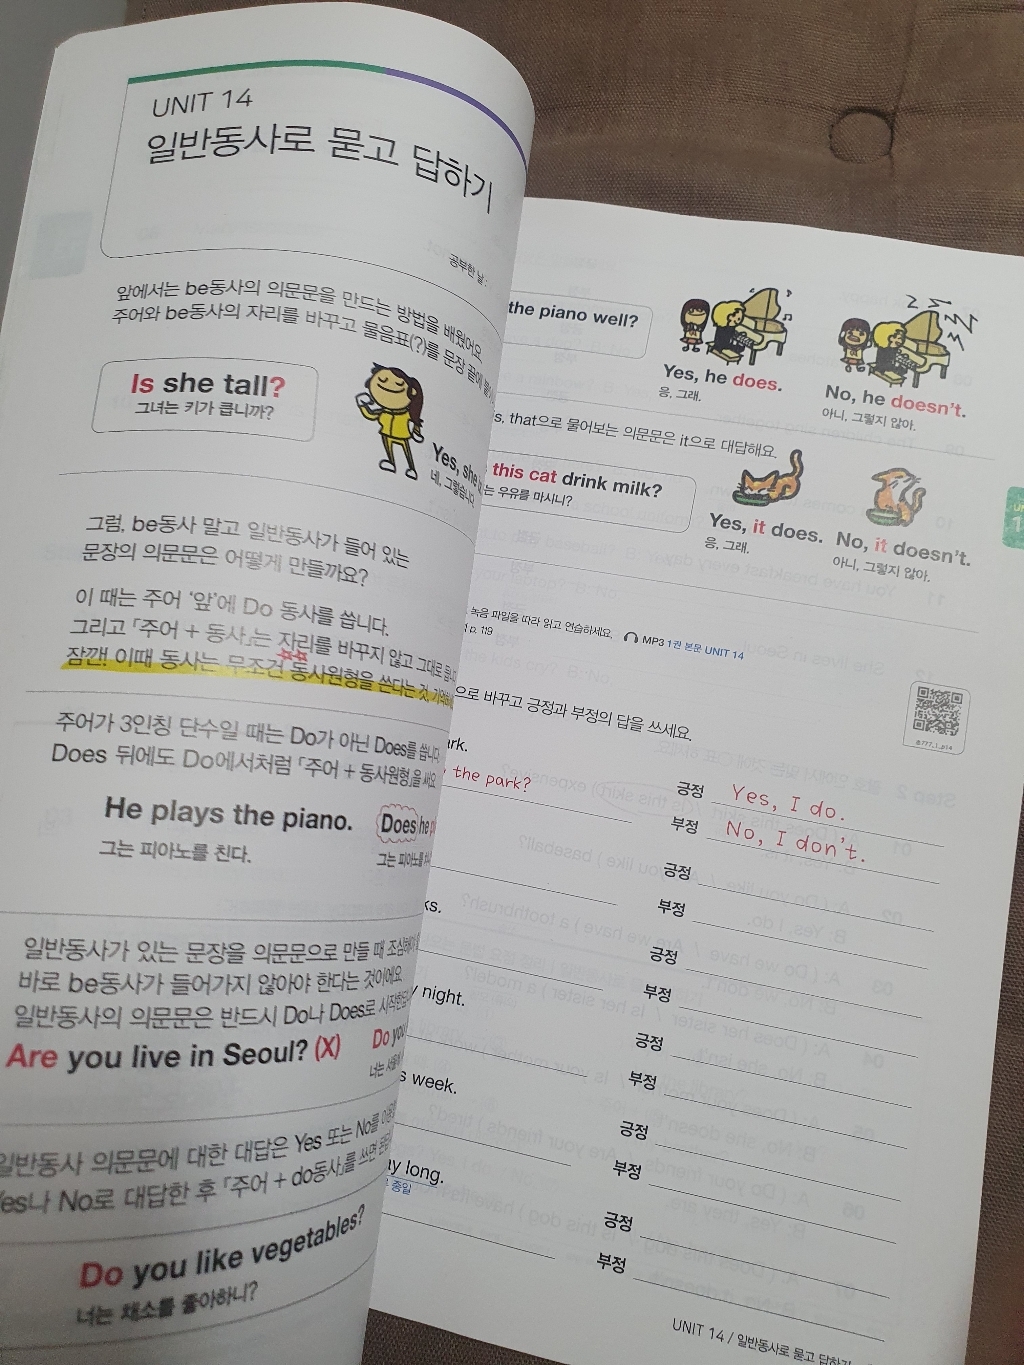 UNIT 14
일반동사로 묻고 답하기
공부한 날 :
앞에서는 be동사의 의문문을 만드는 방법을 배웠어요.
주어와 be동사의 자리를 바꾸고 물음표(?)를 문장 끝에
Is she tall?
그녀는 키가 큽니까?
Yes, she
네, 그렇습니다.
그럼, be동사 말고 일반동사가 들어 있는
문장의 의문문은 어떻게 만들까요?
이 때는 주어 '앞'에 Do 동사를 씁니다.
그리고 「주어 + 동사」는 자리를 바꾸지 않고 그대로 둡니다.
잠깐! 이때 동사는 무조건 동사원형을 쓴다는 것,
주어가 3인칭 단수일 때는 Do가 아닌 Does를 씁니다.
Does 뒤에도 Do에서처럼 「주어 + 동사원형」을 써요.
He plays the piano.
그는 피아노를 친다.
Does he
그는 피아노를
일반동사가 있는 문장을 의문문으로 만들 때
바로 be동사가 들어가지 않아야 한다는 것이에요.
일반동사의 의문문은 반드시 Do나 Does로
Are you live in Seoul? (X)
Do you
너는
일반동사 의문문에 대한 대답은 Yes 또는 No를
Yes나 No로 대답한 후 「주어 + do동사」를 쓰면
Do you like vegetables?
너는 채소를 좋아하니?
the piano well?
Yes, he does.
응, 그래.
No, he doesn't.
아니, 그렇지 않아.
s, that으로 물어보는 의문문은 it으로 대답해요.
this cat drink milk?
는 우유를 마시니?
Yes, it does.
응, 그래.
No, it doesn't.
아니, 그렇지 않아.
녹음 파일을 따라 읽고 연습하세요.
p. 119
MP3 1권 본문 UNIT 14
으로 바꾸고 긍정과 부정의 답을 쓰세요.
ark.
the park?
긍정 Yes, I do.
부정 No, I don't.
긍정
부정
ks.
긍정
부정
night.
긍정
부정
s week.
긍정
부정
ay long.
종일
긍정
부정
UNIT 14 / 일반동사로 묻고 답하기